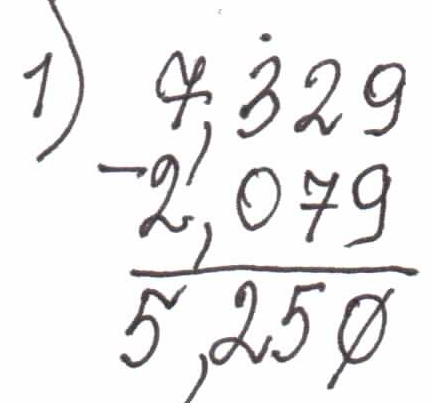 1) 7,329
-2,079
5,250